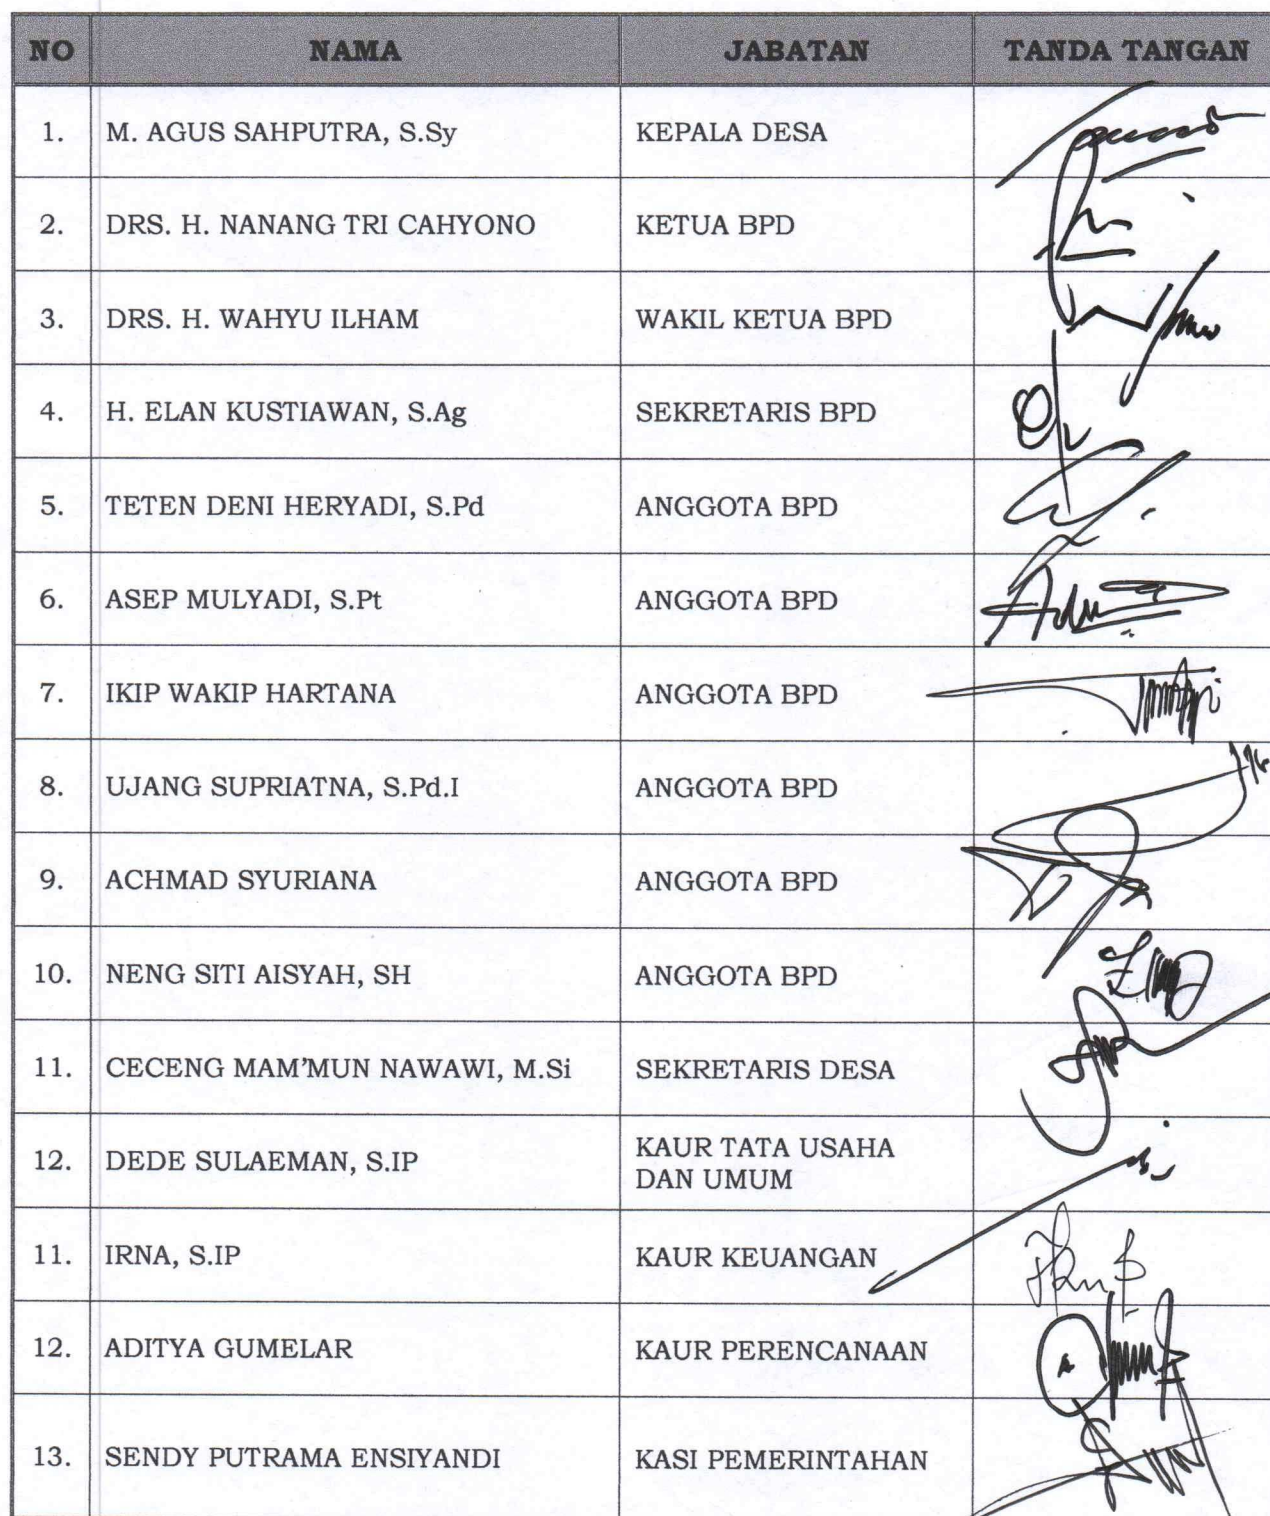 NO NAMA JABATAN TANDA TANGAN
1. M. AGUS SAHPUTRA, S.Sy KEPALA DESA
2. DRS. H. NANANG TRI CAHYONO KETUA BPD
3. DRS. H. WAHYU ILHAM WAKIL KETUA BPD
4. H. ELAN KUSTIAWAN, S.Ag SEKRETARIS BPD
5. TETEN DENI HERYADI, S.Pd ANGGOTA BPD
6. ASEP MULYADI, S.Pt ANGGOTA BPD
7. IKIP WAKIP HARTANA ANGGOTA BPD
8. UJANG SUPRIATNA, S.Pd.I ANGGOTA BPD
9. ACHMAD SYURIANA ANGGOTA BPD
10. NENG SITI AISYAH, SH ANGGOTA BPD
11. CECENG MAM'MUN NAWAWI, M.Si SEKRETARIS DESA
12. DEDE SULAEMAN, S.IP KAUR TATA USAHA
DAN UMUM
11. IRNA, S.IP KAUR KEUANGAN
12. ADITYA GUMELAR KAUR PERENCANAAN
13. SENDY PUTRAMA ENSIYANDI KASI PEMERINTAHAN